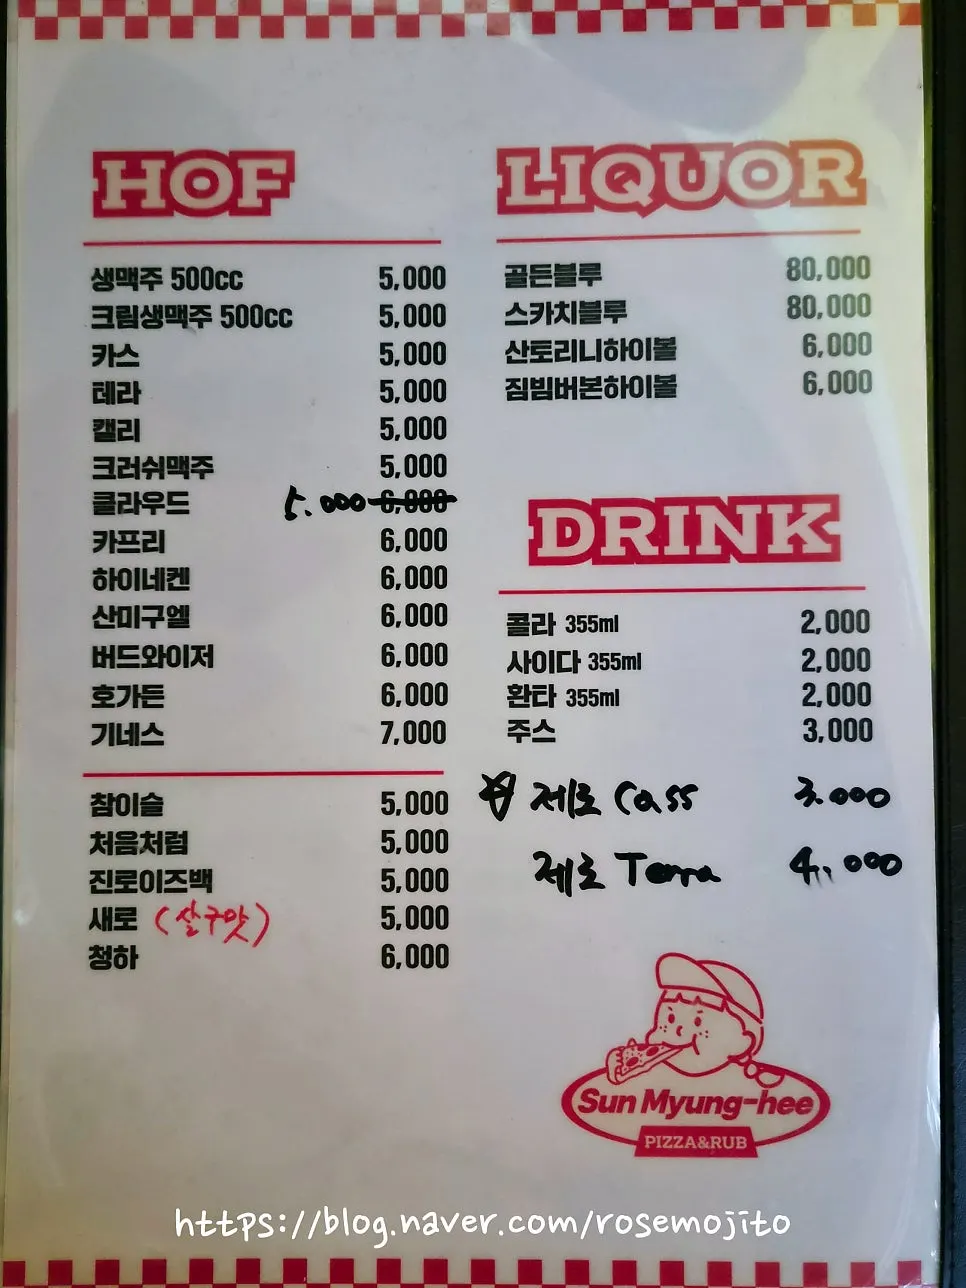 HOF
생맥주 500cc 5,000
크림생맥주 500cc 5,000
카스 5,000
테라 5,000
캘리 5,000
크러쉬맥주 5,000
클라우드 5.000 6,000
카프리 6,000
하이네켄 6,000
산미구엘 6,000
버드와이저 6,000
호가든 6,000
기네스 7,000
참이슬 5,000
처음처럼 5,000
진로이즈백 5,000
새로 (살구맛) 5,000
청하 6,000
LIQUOR
골든블루 80,000
스카치블루 80,000
산토리니하이볼 6,000
짐빔버본하이볼 6,000
DRINK
콜라 355ml 2,000
사이다 355ml 2,000
환타 355ml 2,000
주스 3,000
제로 Cass 3.000
제로 Terra 4.000
Sun Myung-hee
PIZZA&RUB
https://blog.naver.com/rosemojito